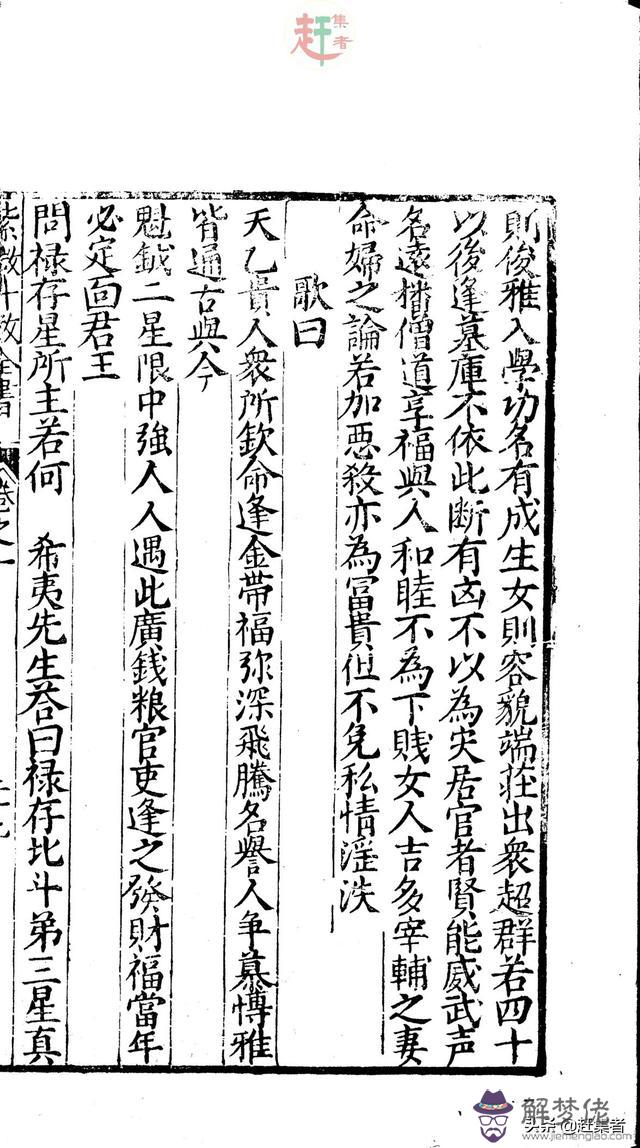 赶集者
則俊雅入學功名有成生女則容貌端莊出衆超群若四十
以後逢墓庫不依此断有凶不以為灾居官者賢能威武声
名遠播僧道享福與人和睦不為下賎女人吉多宰輔之妻
命婦之論若加惡殺亦為富貴但不免私情滛泆
歌曰
天乙貴人衆所欽命逢金帶福弥深飛騰名譽人争慕博雅
皆通古與今
魁鉞二星限中強人人遇此廣錢粮官吏逢之發財福當年
必定面君王
問禄存星所主若何　希夷先生荅曰禄存北斗苐三星真
紫微斗数全書　卷之一
解梦佬
www.jiemengliao.com
头条@赶集者